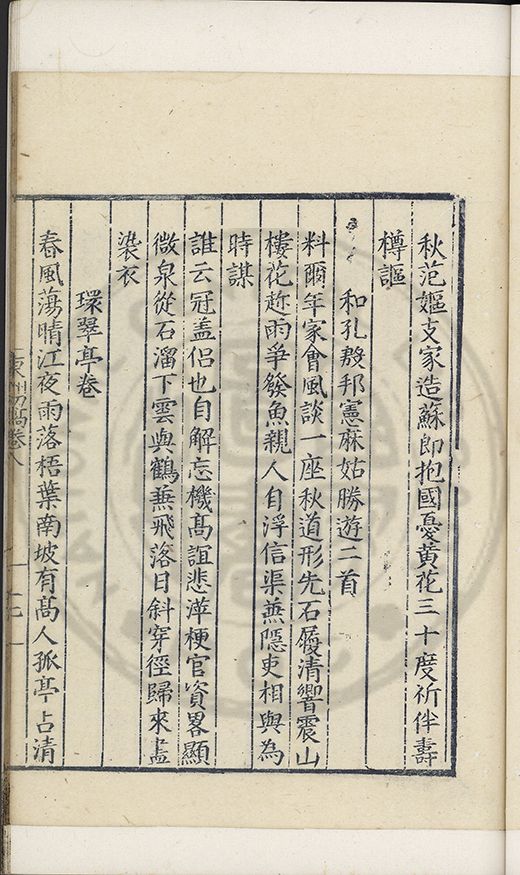 秋范嫗支家造蘇郎抱國憂黄花三十度祈伴壽
樽謳
和孔殷邦憲麻姑勝遊二首
料爾年家會風談一座秋道形先石屐清響震山
樓花趂雨爭發魚親人自浮信渠兼隱吏相與為
時謀
誰云冠盖侣也自解忘機高誼悲萍梗官資畧顯
微泉從石溜下雲與鶴兼飛落日斜穿徑歸來盡
染衣
環翠亭卷
春風蕩晴江夜雨落梧葉南坡有高人孤亭占清
東洲初稿卷八